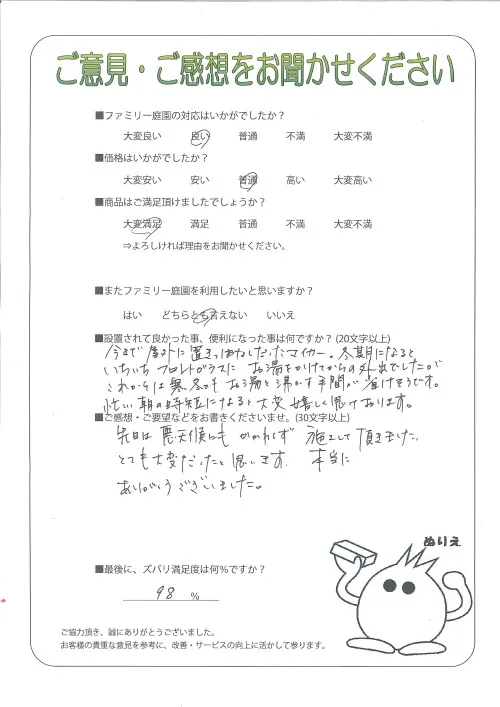 ご意見・ご感想をお聞かせください
■ファミリー庭園の対応はいかがでしたか？
大変良い 良い 普通 不満 大変不満
■価格はいかがでしたか？
大変安い 安い 普通 高い 大変高い
■商品はご満足頂けましたでしょうか？
大変満足 満足 普通 不満 大変不満
⇒よろしければ理由をお聞かせください。
■またファミリー庭園を利用したいと思いますか？
はい どちらとも言えない いいえ
■設置されて良かった事、便利になった事は何ですか？(20文字以上)
今まで屋外に置きっぱなしだったマイカー。冬期になると
いちいちフロントガラスに お湯をかけてからの外出でしたが
これからは寒い冬も お湯を沸かす手間が省けそうです。
忙しい朝の時短になると大変嬉しく思っております。
■ご感想・ご要望などをお書きくださいませ。(30文字以上)
先日は 悪天候にも かかわらず 施工して頂きました。
とても大変だったと思います。 本当に
ありがとうございました。
ぬりえ
■最後に、ズバリ満足度は何％ですか？
98 %
ご協力頂き、誠にありがとうございました。
お客様の貴重な意見を参考に、改善・サービスの向上に活かして参ります。